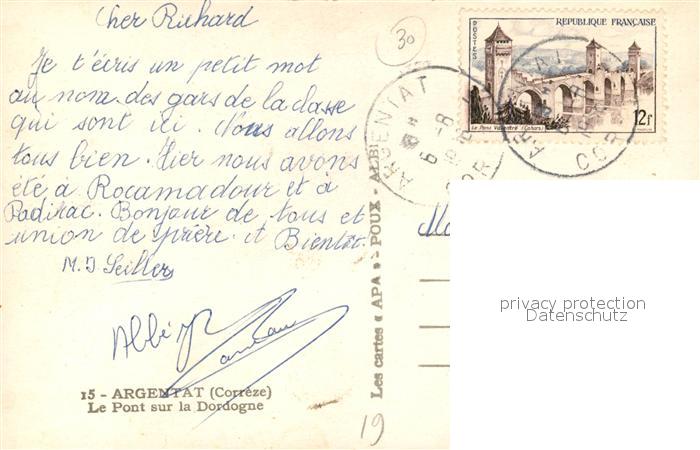 Cher Richard
Je t'écris un petit mot
au nom des gars de la classe
qui sont ici. Nous allons
tous bien. Hier nous avons
été à Rocamadour et à
Padirac. Bonjour de tous et
union de prière. et Bientôt.
M.J Seiller
Abbé
15 - ARGENTAT (Corrèze)
Le Pont sur la Dordogne
Les cartes « APA » - POUX - ALBI
30
19
POSTES
REPUBLIQUE FRANÇAISE
Le Pont Valentré (Cahors)
12f
ARGENTAT
6 -8
COR
privacy protection
Datenschutz